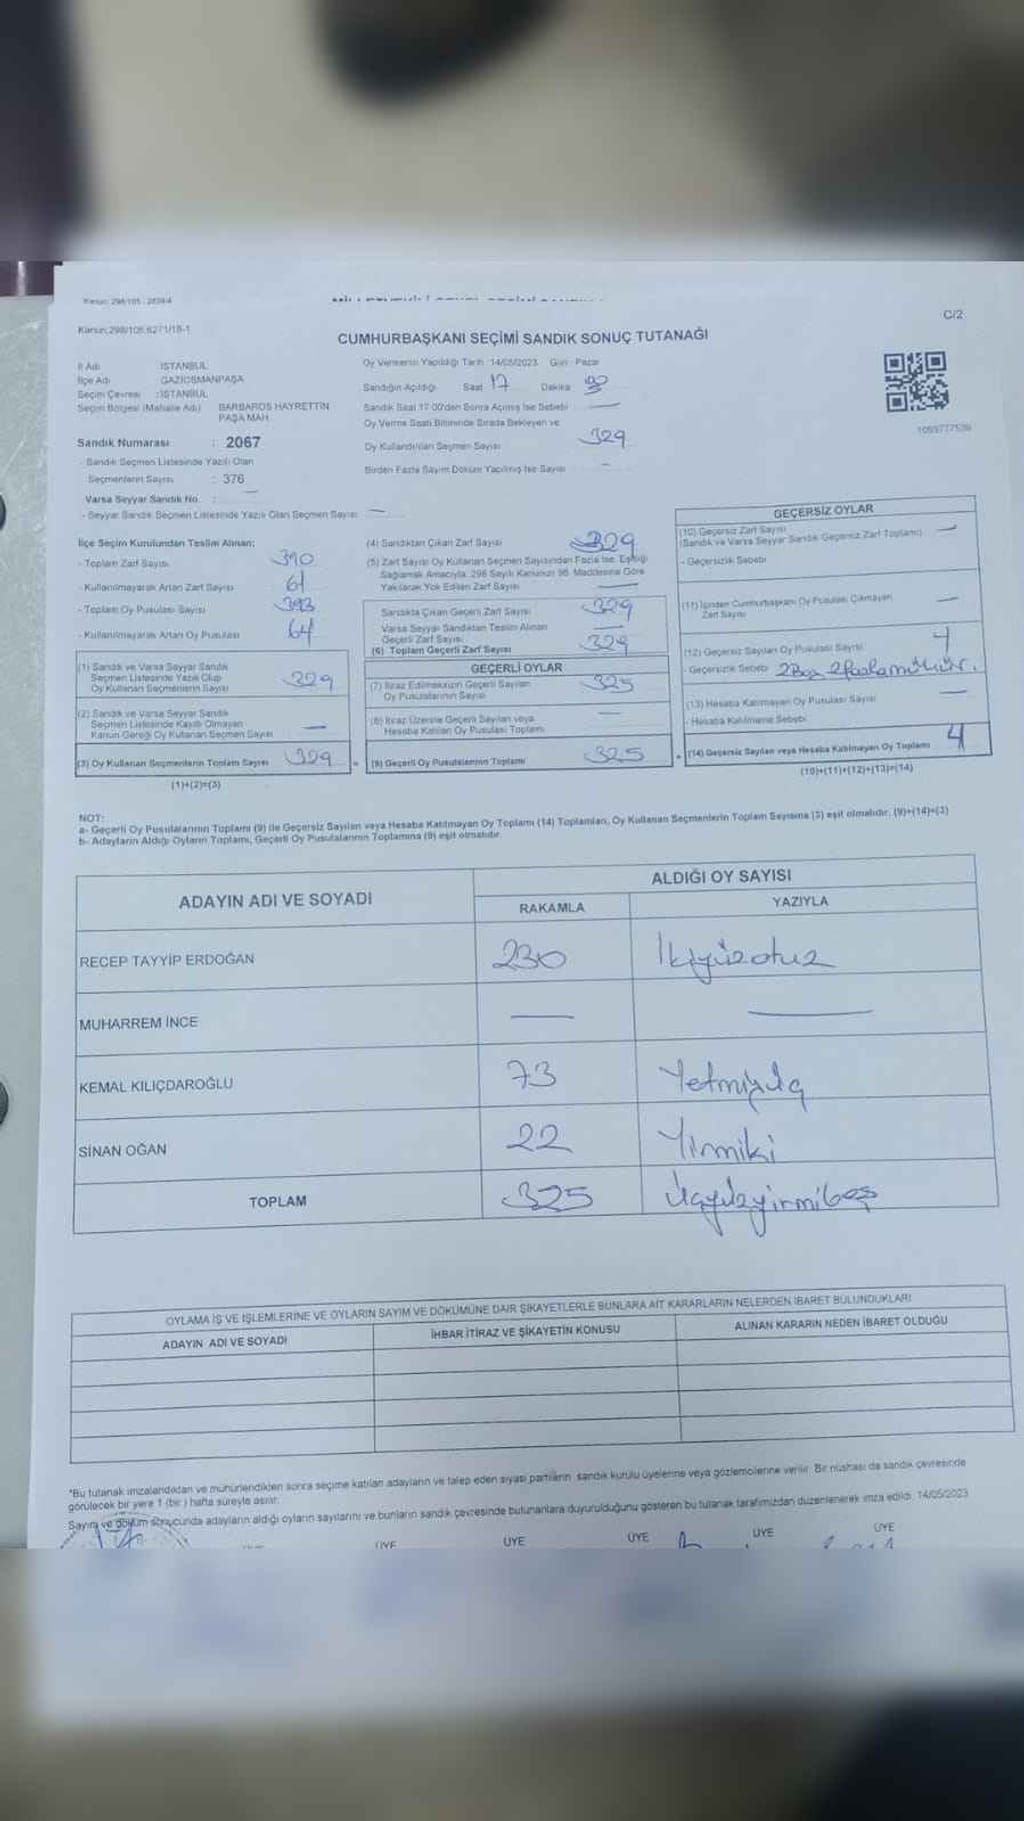 Kanun: 298/105
Kanun:298/105,6271/18-1
C/2
CUMHURBAŞKANI SEÇİMİ SANDIK SONUÇ TUTANAĞI
İl Adı : İSTANBUL
İlçe Adı : GAZİOSMANPAŞA
Seçim Çevresi : İSTANBUL
Seçim Bölgesi (Mahalle Adı) BARBAROS HAYRETTİN PAŞA MAH.
Sandık Numarası : 2067
- Sandık Seçmen Listesinde Yazılı Olan
Seçmenlerin Sayısı : 376
Varsa Seyyar Sandık No : —
- Seyyar Sandık Seçmen Listesinde Yazılı Olan Seçmen Sayısı —
Oy Vermenin Yapıldığı Tarih :14/05/2023 Gün : Pazar
Sandığın Açıldığı Saat 17 Dakika
Sandık Saat 17:00'den Sonra Açılmış İse Sebebi —
Oy Verme Saati Bitiminde Sırada Bekleyen ve
Oy Kullandırılan Seçmen Sayısı 329
Birden Fazla Sayım Döküm Yapılmış İse Sayısı —
1093777539
İlçe Seçim Kurulundan Teslim Alınan;
- Toplam Zarf Sayısı 390
- Kullanılmayarak Artan Zarf Sayısı 61
- Toplam Oy Pusulası Sayısı 393
- Kullanılmayarak Artan Oy Pusulası 64
(1) Sandık ve Varsa Seyyar Sandık
Seçmen Listesinde Yazılı Olup
Oy Kullanan Seçmenlerin Sayısı 329
(2) Sandık ve Varsa Seyyar Sandık
Seçmen Listesinde Kayıtlı Olmayan
Kanun Gereği Oy Kullanan Seçmen Sayısı —
(3) Oy Kullanan Seçmenlerin Toplam Sayısı 329
(1)+(2)=(3)
(4) Sandıktan Çıkan Zarf Sayısı 329
(5) Zarf Sayısı Oy Kullanan Seçmen Sayısından Fazla İse, Eşitliği
Sağlamak Amacıyla, 298 Sayılı Kanunun 98. Maddesine Göre
Yakılarak Yok Edilen Zarf Sayısı —
Sandıkta Çıkan Geçerli Zarf Sayısı 329
Varsa Seyyar Sandıktan Teslim Alınan
Geçerli Zarf Sayısı —
(6) Toplam Geçerli Zarf Sayısı 329
GEÇERLİ OYLAR
(7) İtiraz Edilmeksizin Geçerli Sayılan
Oy Pusulalarının Sayısı 325
(8) İtiraz Üzerine Geçerli Sayılan veya
Hesaba Katılan Oy Pusulası Toplamı —
= (9) Geçerli Oy Pusulalarının Toplamı 325
GEÇERSİZ OYLAR
(10) Geçersiz Zarf Sayısı —
(Sandık ve Varsa Seyyar Sandık Geçersiz Zarf Toplamı)
- Geçersizlik Sebebi
(11) İçinden Cumhurbaşkanı Oy Pusulası Çıkmayan
Zarf Sayısı —
(12) Geçersiz Sayılan Oy Pusulası Sayısı 4
- Geçersizlik Sebebi 2 Boş 2
(13) Hesaba Katılmayan Oy Pusulası Sayısı —
- Hesaba Katılmama Sebebi
+ (14) Geçersiz Sayılan veya Hesaba Katılmayan Oy Toplamı 4
(10)+(11)+(12)+(13)=(14)
NOT:
a- Geçerli Oy Pusulalarının Toplamı (9) ile Geçersiz Sayılan veya Hesaba Katılmayan Oy Toplamı (14) Toplamları, Oy Kullanan Seçmenlerin Toplam Sayısına (3) eşit olmalıdır. (9)+(14)=(3)
b- Adayların Aldığı Oyların Toplamı, Geçerli Oy Pusulalarının Toplamına (9) eşit olmalıdır.
ADAYIN ADI VE SOYADI
ALDIĞI OY SAYISI
RAKAMLA YAZIYLA
RECEP TAYYİP ERDOĞAN 230 İkiyüzotuz
MUHARREM İNCE — —
KEMAL KILIÇDAROĞLU 73 Yetmişüç
SİNAN OĞAN 22 Yirmiki
TOPLAM 325 Üçyüzyirmibeş
OYLAMA İŞ VE İŞLEMLERİNE VE OYLARIN SAYIM VE DÖKÜMÜNE DAİR ŞİKAYETLERLE BUNLARA AİT KARARLARIN NELERDEN İBARET BULUNDUKLARI
ADAYIN ADI VE SOYADI İHBAR İTİRAZ VE ŞİKAYETİN KONUSU ALINAN KARARIN NEDEN İBARET OLDUĞU
*Bu tutanak imzalandıktan ve mühürlendikten sonra seçime katılan adayların ve talep eden siyasi partilerin sandık kurulu üyelerine veya gözlemcilerine verilir. Bir nüshası da sandık çevresinde
görülecek bir yere 1 (bir) hafta süreyle asılır.
Sayım ve döküm sonucunda adayların aldığı oyların sayılarını ve bunların sandık çevresinde bulunanlara duyurulduğunu gösteren bu tutanak tarafımızdan düzenlenerek imza edildi. 14/05/2023
ÜYE ÜYE ÜYE ÜYE ÜYE